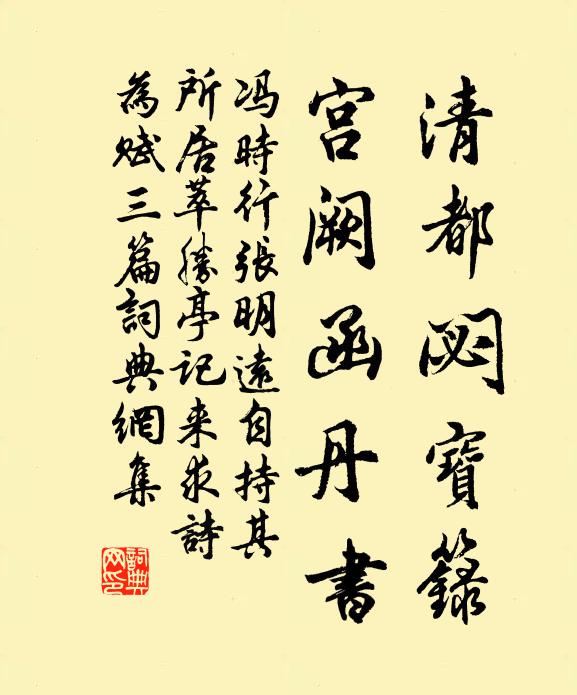 清都閟寶籙
宫阙函丹書
冯時行張明遠自持其
所居萃勝亭記来求詩
為赋三篇詞典網集
詞典网印